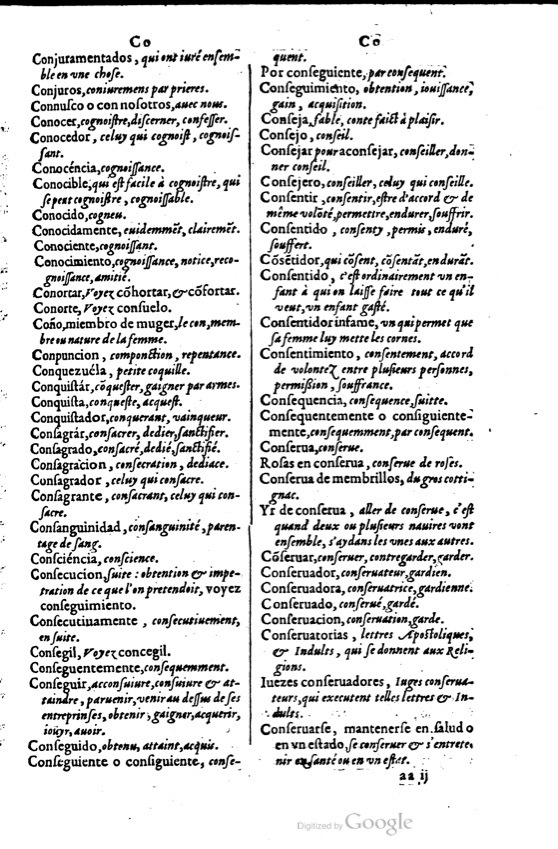 Co
Conjuramentados, qui ont iuré ensem-
ble en vne chose.
Conjuros, coniuremens par prieres.
Connusco o con nosotros, auec nous.
Conocer, cognoistre, discerner, confesser.
Conocedor, celuy qui cognoist, cognois-
sant.
Conocéncia, cognoissance.
Conocible, qui est facile à cognoistre, qui
se peut cognoistre, cognoissable.
Conocido, cogneu.
Conocidamente, euidemmẽt, clairemẽt.
Conociente, cognoissant.
Conocimiento, cognoissance, notice, reco-
gnoissance, amitié.
Conortar, Voyez cõhortar, & cõfortar.
Conorte, Voyez consuelo.
Coño, miembro de muger, le con, mem-
bre ou nature de la femme.
Conpuncion, componction, repentance.
Conquezuéla, petite coquille.
Conquistár, cõquester, gaigner par armes.
Conquista, conqueste, acquest.
Conquistador, conquerant, vainqueur.
Consagrár, consacrer, dedier, sanctifier.
Consagrado, consacré, dedié, sanctifié.
Consagracion, consecration, dediace.
Consagrador, celuy qui consacre.
Consagrante, consacrant, celuy qui con-
sacre.
Consanguinidad, consanguinité, paren-
tage de sang.
Consciéncia, conscience.
Consecucion, suite : obtention & impe-
tration de ce que l'on pretendoit, voyez
conseguimiento.
Consecutinamente, consecutiuement,
en suite.
Consegil, Voyez concegil.
Conseguentemente, consequemment.
Conseguir, acconsuiure, consuiure & at-
taindre, paruenir, venir au dessus de ses
entreprinses, obtenir, gaigner, acquerir,
iouyr, auoir.
Conseguido, obtenu, attaint, acquis.
Conseguiente o consiguiente, conse-
Co
quent.
Por conseguiente, par consequent.
Conseguimiento, obtention, iouissance,
gain, acquisition.
Conseja, fable, conte faict à plaisir.
Consejo, conseil.
Consejar por aconsejar, conseiller, don-
ner conseil.
Consejero, conseiller, celuy qui conseille.
Consentir, consentir, estre d'accord & de
même volõté, permettre, endurer, souffrir.
Consentido, consenty, permis, enduré,
souffert.
Cõsẽtidor, qui cõsent, cõsentãt, endurãt.
Consentido, c'est ordinairement vn en-
fant à qui on laisse faire tout ce qu'il
veut, vn enfant gasté.
Consentidor infame, vn qui permet que
sa femme luy mette les cornes.
Consentimiento, consentement, accord
de volontez entre plusieurs personnes,
permission, souffrance.
Consequencia, consequence, suitte.
Consequentemente o consiguiente-
mente, consequemment, par consequent.
Conserua, conserue.
Rosas en conserua, conserue de roses.
Conserua de membrillos, du gros cotti-
gnac.
Yr de conserua, aller de conserue, c'est
quand deux ou plusieurs nauires vont
ensemble, s'aydans les vnes aux autres.
Cõseruar, conseruer, contregarder, garder.
Conseruador, conseruateur, gardien.
Conseruadora, conseruatrice, gardienne.
Conseruado, conserué, gardé.
Conseruacion, conseruation, garde.
Conseruatorias, lettres Apostoliques,
& Indults, qui se donnent aux Reli-
gions.
Iuezes conseruadores, Iuges conserua-
teurs, qui executent telles lettres & In-
dults.
Conseruarse, mantenerse en salud o
en vn estado, se conseruer & s'entrete-
nir en santé ou en vn estat.
aa ij
Digitized by Google